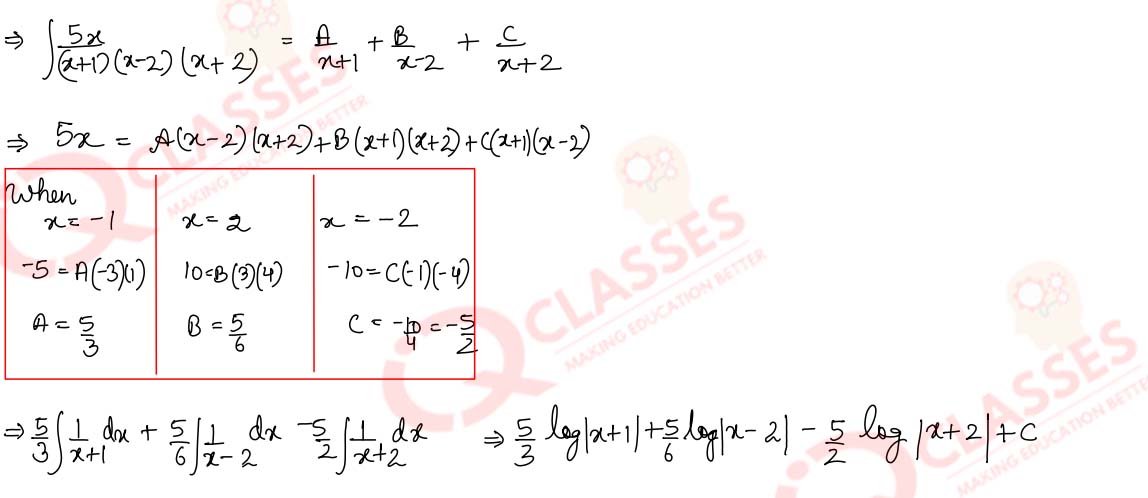 ⇒ ∫ 5x/(x+1)(x-2)(x+2) = A/x+1 + B/x-2 + C/x+2
⇒ 5x = A(x-2)(x+2)+B(x+1)(x+2)+C(x+1)(x-2)
When
x=-1
-5=A(-3)(1)
A=5/3
x=2
10=B(3)(4)
B=5/6
x=-2
-10=C(-1)(-4)
C=-10/4=-5/2
⇒ 5/3 ∫ 1/x+1 dx + 5/6 ∫ 1/x-2 dx -5/2 ∫ 1/x+2 dx ⇒ 5/3 log|x+1|+5/6 log|x-2| - 5/2 log|x+2|+C
CLASSES
MAKING EDUCATION BETTER
CLASSES
MAKING EDUCATION BETTER
CLASSES
MAKING EDUCATION BETTER